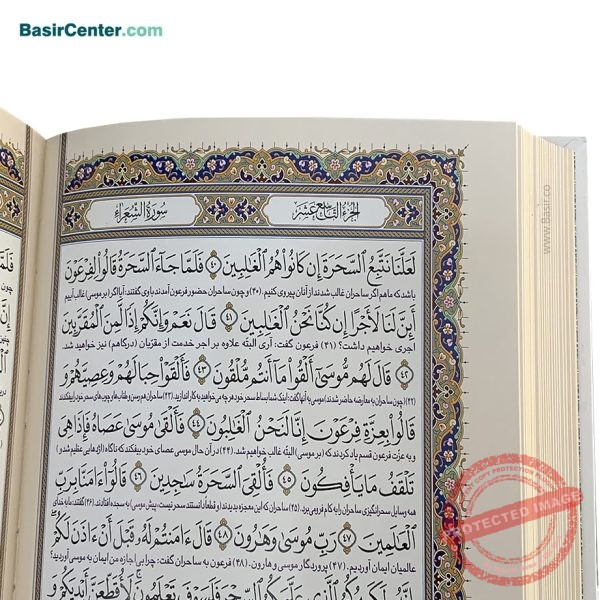 BasirCenter.com
الجزء التاسع عشر
سورة الشعراء
لَعَلَّنَا نَتَّبِعُ السَّحَرَةَ إِن كَانُوا هُمُ الْغَالِبِينَ ﴿٤٠﴾ فَلَمَّا جَاءَ السَّحَرَةُ قَالُوا لِفِرْعَوْنَ
باشد که ما هم اگر ساحران غالب شدند از آنان پیروی کنیم. (۴۰) و چون ساحران حضور فرعون آمدند با وی گفتند: آیا اگر (بر موسی) غالب آییم
أَئِنَّ لَنَا لَأَجْرًا إِن كُنَّا نَحْنُ الْغَالِبِينَ ﴿٤١﴾ قَالَ نَعَمْ وَإِنَّكُمْ إِذًا لَّمِنَ الْمُقَرَّبِينَ
اجری خواهیم داشت؟ (۴۱) فرعون گفت: آری البتّه علاوه بر اجر خدمت از مقرّبان (درگاهم) نیز خواهید شد.
﴿٤٢﴾ قَالَ لَهُم مُّوسَىٰ أَلْقُوا مَا أَنتُم مُّلْقُونَ ﴿٤٣﴾ فَأَلْقَوْا حِبَالَهُمْ وَعِصِيَّهُمْ وَ
(۴۲) (چون ساحران به معارضه حاضر شدند) موسی به آنها گفت: اینک شما بساط سحر خود هر چه می‌خواهید به کار اندازید. (۴۳)
قَالُوا بِعِزَّةِ فِرْعَوْنَ إِنَّا لَنَحْنُ الْغَالِبُونَ ﴿٤٤﴾ فَأَلْقَىٰ مُوسَىٰ عَصَاهُ فَإِذَا هِيَ
و به عزّت فرعون قسم یاد کردند که (بر موسی) البتّه غالب خواهیم شد. (۴۴) در آن حال موسی عصای خود بیفکند که ناگاه (اژدهایی عظیم شد و)
تَلْقَفُ مَا يَأْفِكُونَ ﴿٤٥﴾ فَأُلْقِيَ السَّحَرَةُ سَاجِدِينَ ﴿٤٦﴾ قَالُوا آمَنَّا بِرَبِّ
همه وسایل سحرانگیزی ساحران را به کام فرو می‌برد. (۴۵) ساحران که این معجزه بدیدند (و قطعاً دانستند سحر نیست، پیش موسی) به سجده افتادند. (۴۶) گفتند: ما به خدای
الْعَالَمِينَ ﴿٤٧﴾ رَبِّ مُوسَىٰ وَهَارُونَ ﴿٤٨﴾ قَالَ آمَنتُمْ لَهُ قَبْلَ أَنْ آذَنَ لَكُمْ
عالمیان ایمان آوردیم. (۴۷) پروردگار موسی و هارون. (۴۸) فرعون به ساحران گفت: چرا بی اجازه من ایمان به موسی آوردید؟
إِنَّهُ لَكَبِيرُكُمُ الَّذِي عَلَّمَكُمُ السِّحْرَ فَلَسَوْفَ تَعْلَمُونَ لَأُقَطِّعَنَّ أَيْدِيَكُمْ وَ
www.Basir.co
PROTECTED IMAGE